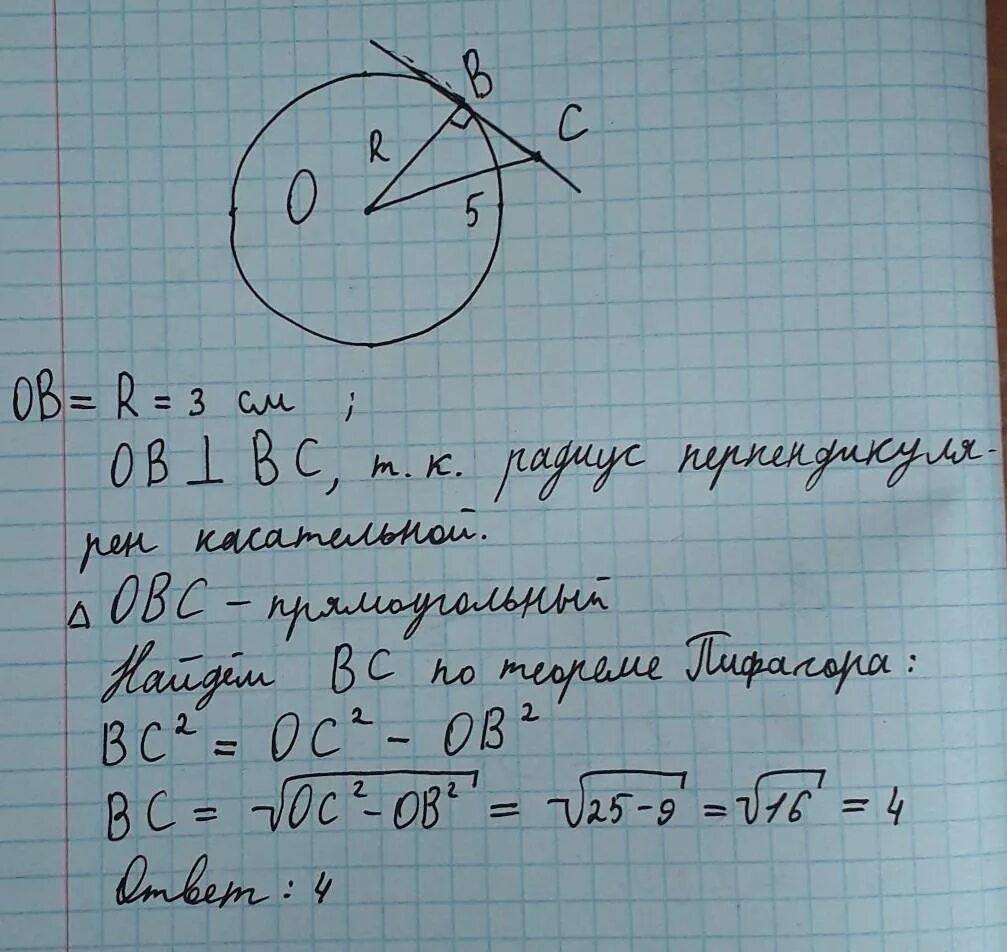 B
C
R
O
5
OB = R = 3 см ;
OB ⊥ BC, т. к. радиус перпендикуля-
рен касательной.
△ OBC – прямоугольный
Найдём BC по теореме Пифагора:
BC² = OC² - OB²
BC = √OC² - OB² = √25-9 = √16 = 4
Ответ: 4